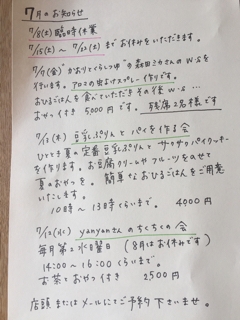 7月のお知らせ
7/8(土)臨時休業
7/15(土)〜7/22(土)までお休みをいただきます。
7/7(金)"かおりとくらしつゆ"の森田さかさんのW・Sを
行います。アロマの虫よけスプレー作りです。
おひるごはんを食べていただきその後W・S…
おやつ付き 5000円です。残席2名様です
7/13(木) 豆乳ぷりんとパイを作る会
ひととき夏の定番豆乳ぷりんとサクサクパイクッキー
を作ります。お豆腐クリームやフルーツをのせて
夏のおやつを。簡単なおひるごはんをご用意
いたします。
10時〜13時くらいまで。4000円
7/12(水) yanyanさんのちくちくの会
毎月第2水曜日(8月はお休みです)
14:00〜16:00くらいまで。
お茶とおやつ付き 2500円
店頭またはメールにてご予約下さいませ。